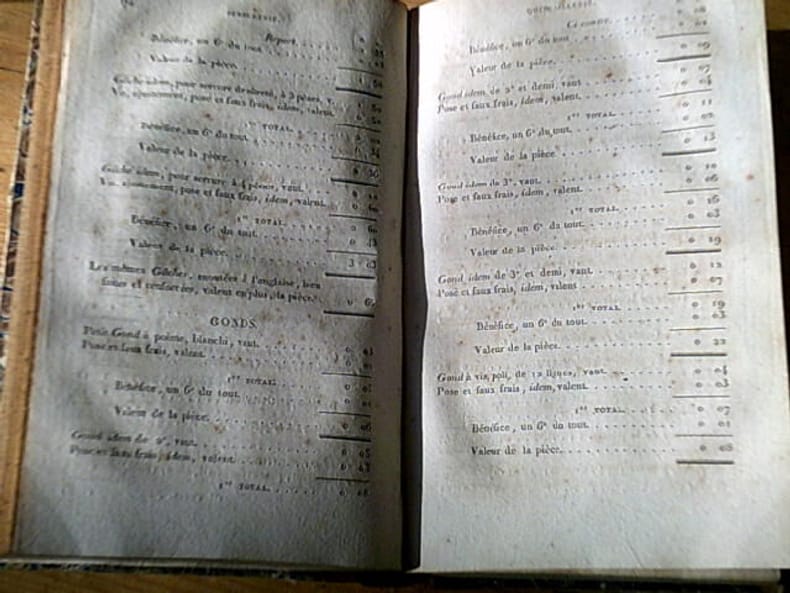 Report
Bénéfice, un 6e du tout
Valeur de la pièce
Gâche idem, pour serrure de sûreté, à 3 pênes, v.
Vis, ajustement, pose et faux frais, idem, valent
1er TOTAL
Bénéfice, un 6e du tout
Valeur de la pièce
Gâche idem, pour serrure à 4 pênes, vaut
Vis, ajustement, pose et faux frais, idem, valent
1er TOTAL
Bénéfice, un 6e du tout
Valeur de la pièce
Les mêmes Gâches, montées à l'anglaise, bien
faites et renforcées, valent en plus, la pièce
GONDS.
Petit Gond à pointe, blanchi, vaut
Pose et faux frais, valent
1er TOTAL
Bénéfice, un 6e du tout
Valeur de la pièce 0 06
Gond idem de 2°, vaut 0 05
Pose et faux frais, idem, valent 0 03
1er TOTAL 0 08
QUINCAILLERIE.
Ci contre
Bénéfice, un 6e du tout
Valeur de la pièce 0 09
Gond idem de 2° et demi, vaut 0 07
Pose et faux frais, idem, valent 0 04
1er TOTAL 0 11
Bénéfice, un 6e du tout 0 02
Valeur de la pièce 0 13
Gond idem de 3°, vaut 0 10
Pose et faux frais, idem, valent 0 06
1er TOTAL 0 16
Bénéfice, un 6e du tout 0 03
Valeur de la pièce 0 19
Gond idem de 3° et demi, vaut 0 12
Pose et faux frais, idem, valent 0 07
1er TOTAL 0 19
Bénéfice, un 6e du tout 0 03
Valeur de la pièce 0 22
Gond à vis, poli, de 12 lignes, vaut 0 04
Pose et faux frais, idem, valent 0 03
1er TOTAL 0 07
Bénéfice, un 6e du tout 0 01
Valeur de la pièce 0 08